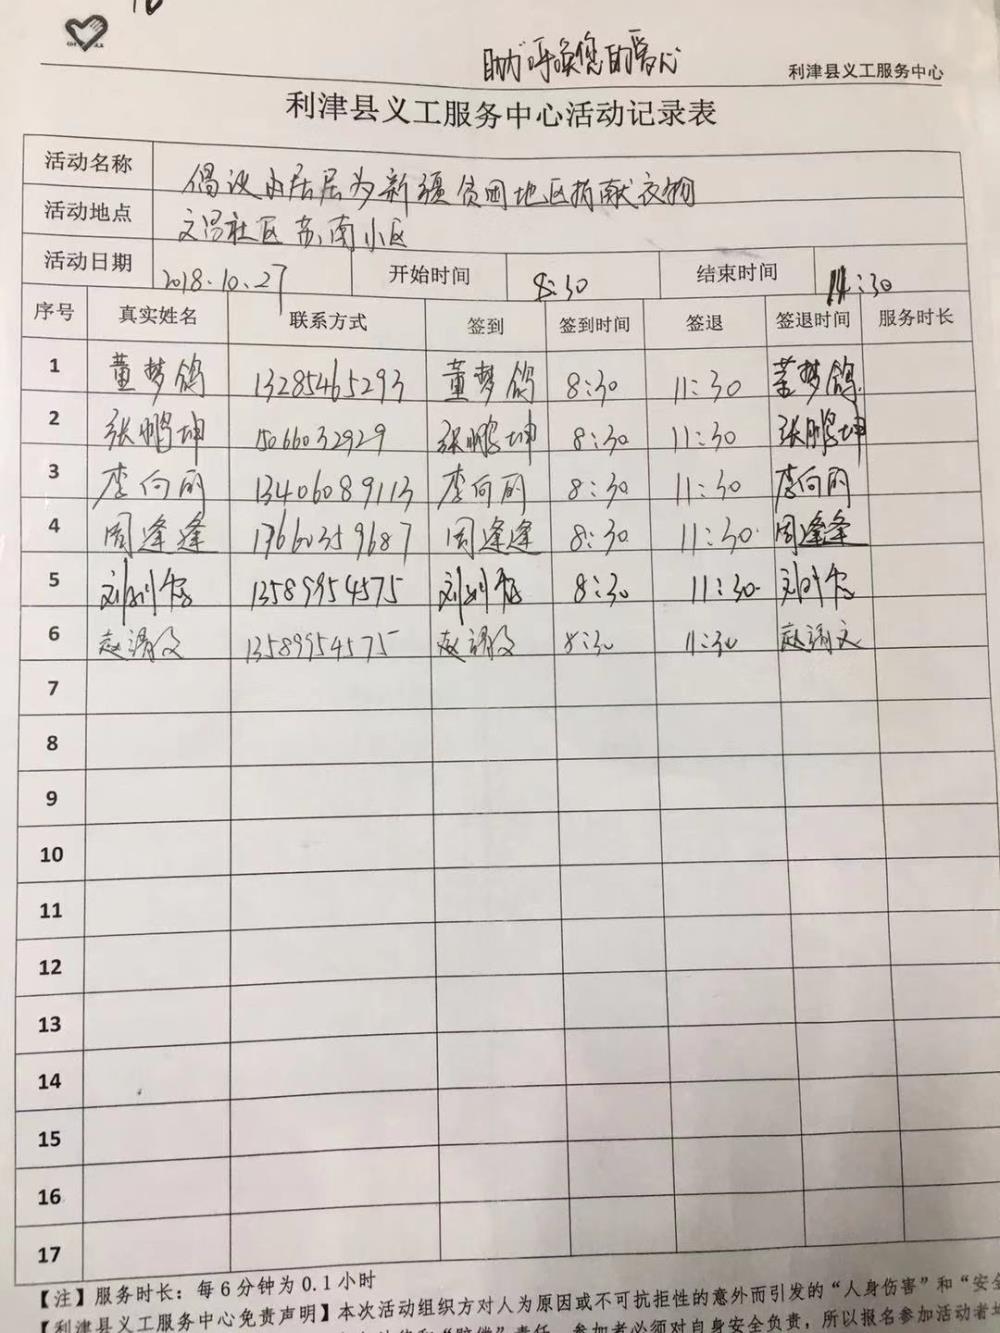 呼唤您的爱心
利津县义工服务中心
利津县义工服务中心活动记录表
活动名称 倡议由居民为新疆贫困地区捐献衣物
活动地点 文昌社区 南小区
活动日期 2018.10.27 开始时间 8:30 结束时间 11:30
序号 真实姓名 联系方式 签到 签到时间 签退 签退时间 服务时长
1 董梦鸽 13285465293 董梦鸽 8:30 11:30 董梦鸽
2 张鹏坤 15066032929 张鹏坤 8:30 11:30 张鹏坤
3 李向丽 13406089113 李向丽 8:30 11:30 李向丽
4 周逢逢 17660359687 周逢逢 8:30 11:30 周逢逢
5 刘 13589954575 刘 8:30 11:30 刘
6 赵清文 13589954575 赵清文 8:30 11:30 赵清文
7
8
9
10
11
12
13
14
15
16
17
【注】服务时长：每6分钟为0.1小时
【利津县义工服务中心免责声明】本次活动组织方对人为原因或不可抗拒性的意外而引发的“人身伤害”和“安全
责任，参加者必须对自身安全负责，所以报名参加活动者